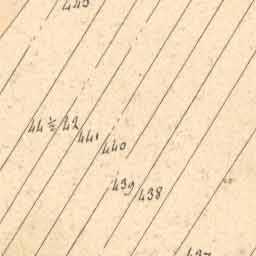 443
44½
442
441
440
439
438
437